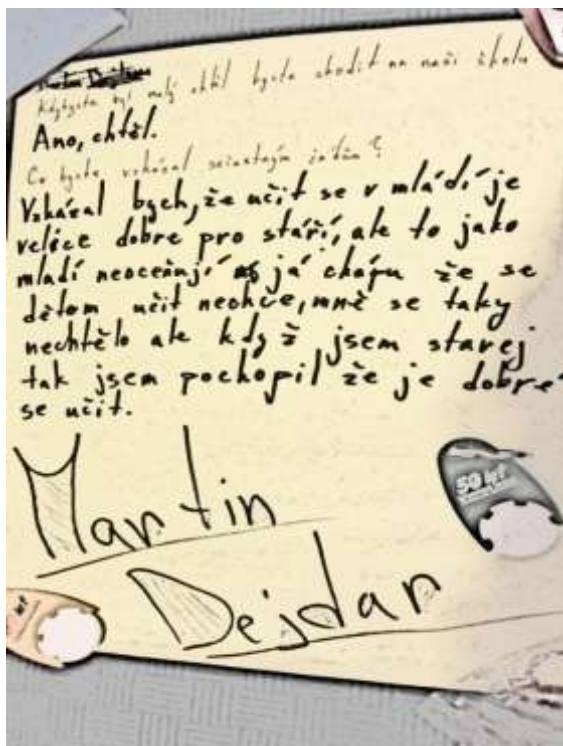 Kdybyste byl malý chtěl byste chodit na naši školu
Ano, chtěl.
Co byste vzkázal jetům?
Vzkázal bych, že učit se v mládí je
velice dobre pro stáří, ale to jako
mladí neoceňují já chápu že se
dětom učit nechce, mně se taky
nechtělo ale když jsem starej
tak jsem pochopil že je dobre
se učit.
Martin
Dejdar
50 let